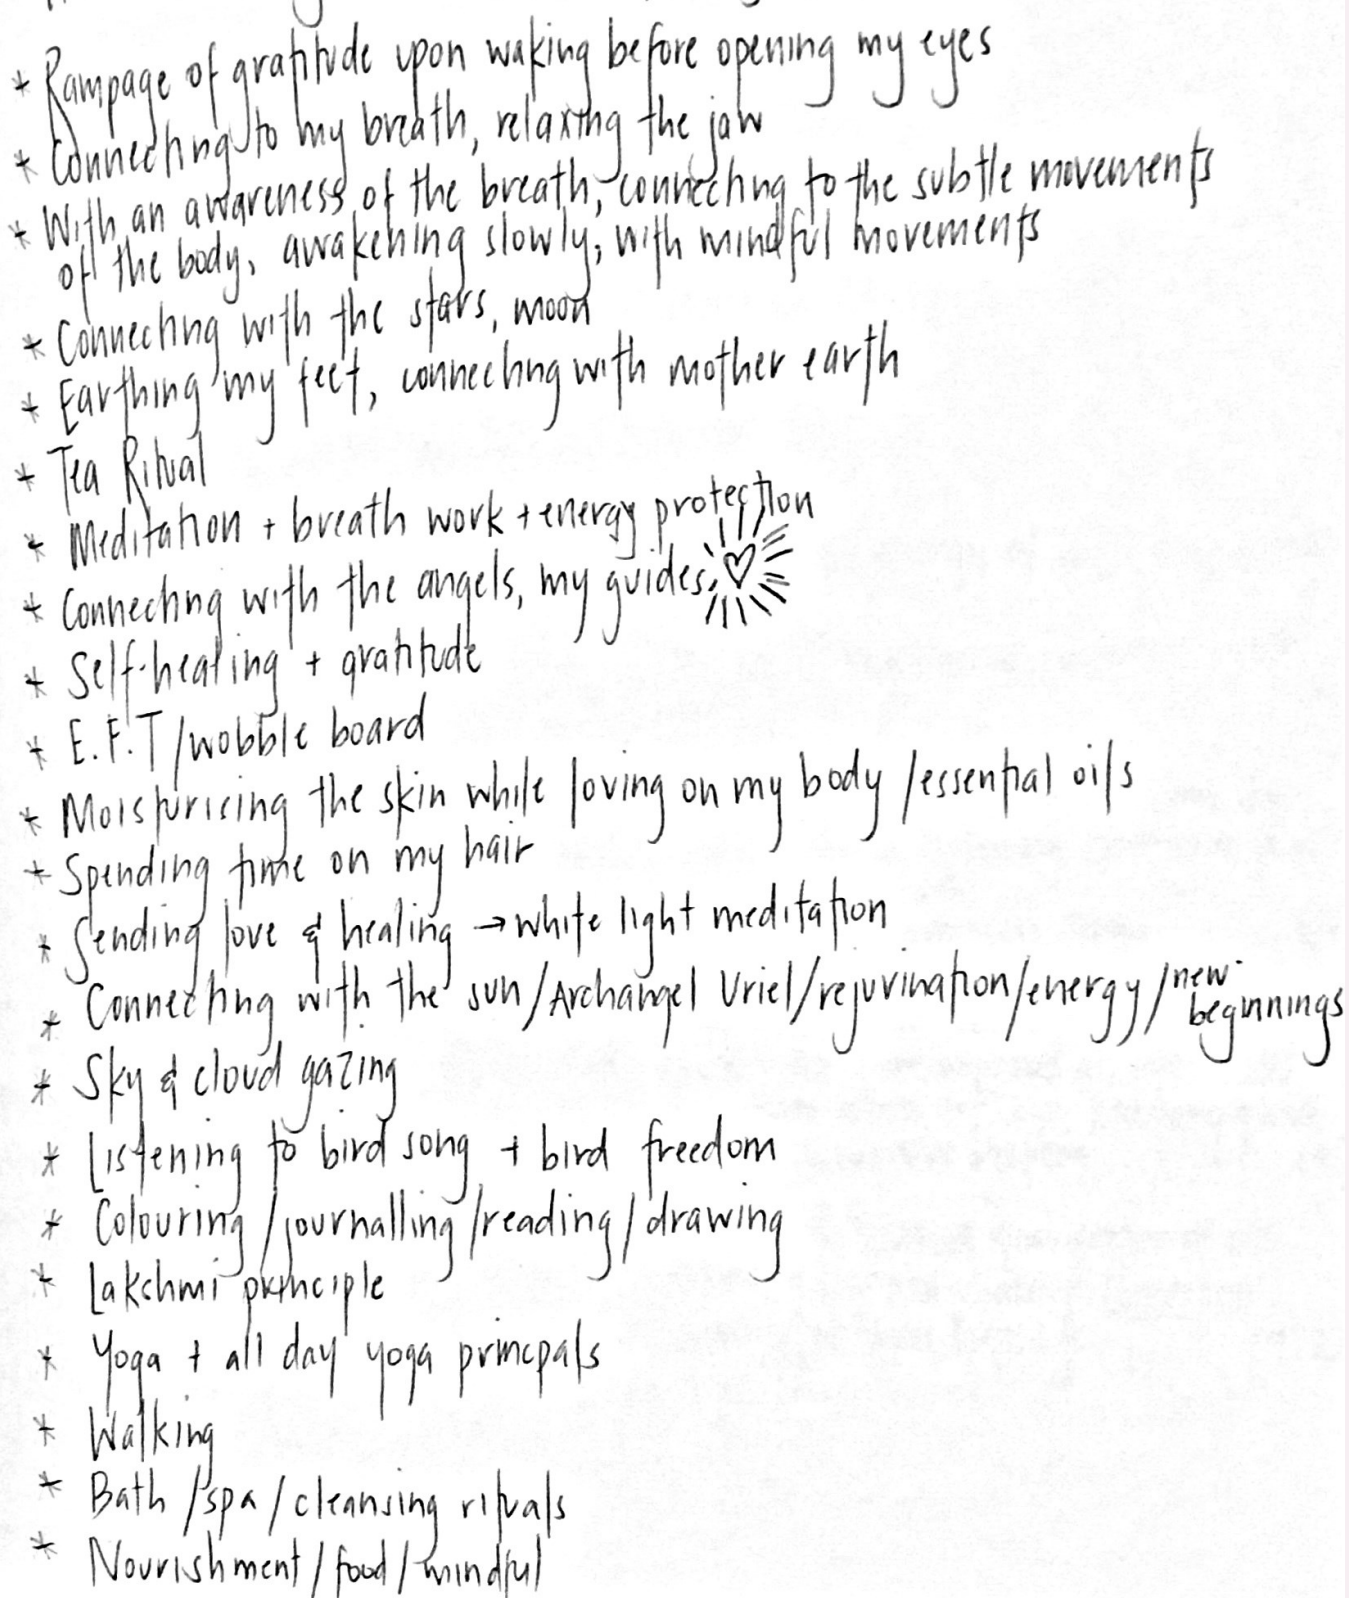 * Rampage of gratitude upon waking before opening my eyes
* Connecting to my breath, relaxing the jaw
* With an awareness of the breath, connecting to the subtle movements
of the body, awakening slowly, with mindful movements
* Connecting with the stars, moon
* Earthing my feet, connecting with mother earth
* Tea Ritual
* Meditation + breath work + energy protection
* Connecting with the angels, my guides,
* Self-healing + gratitude
* E.F.T/wobble board
* Moisturising the skin while loving on my body /essential oils
* Spending time on my hair
* Sending love & healing → white light meditation
* Connecting with the sun/Archangel Uriel/rejuvination/energy/new
beginnings
* Sky & cloud gazing
* Listening to bird song + bird freedom
* Colouring /journalling /reading/drawing
* Lakchmi principle
* Yoga + all day yoga princpals
* Walking
* Bath /spa/cleansing rituals
* Nourishment/food/mindful